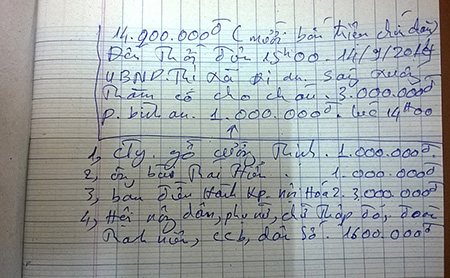 14.900.000đ (mười bốn triệu chín trăm)
Đến thời điểm 15h00. 14/9/2016
UBND. Thị xã Dĩ An. Sang xuống
Thăm có cho cháu. 3.000.000đ
p. bình an. 1.000.000đ. lúc 14h00
1, Cty. gỗ cường Thịnh. 1.000.000đ.
2, ông bà Hai Hiền. 1.000.000đ
3, ban điều hành Kp. nội Hóa 2. 3.000.000đ
4, Hội nông dân, phụ nữ, chữ Thập đỏ, đoàn
Thanh niên, ccb, dân số. 1600.000đ